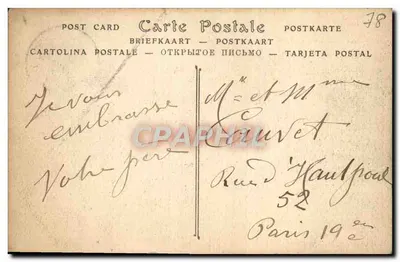 POST CARD Carte Postale POSTKARTE
BRIEFKAART — POSTKAART
CARTOLINA POSTALE — ОТКРЫТОЕ ПИСЬМО — TARJETA POSTAL
78
Je vous
embrasse
Votre père
Mr et Mme
Couvet
Rue d'Hautpoul
52
Paris 19e
Carte-Postale